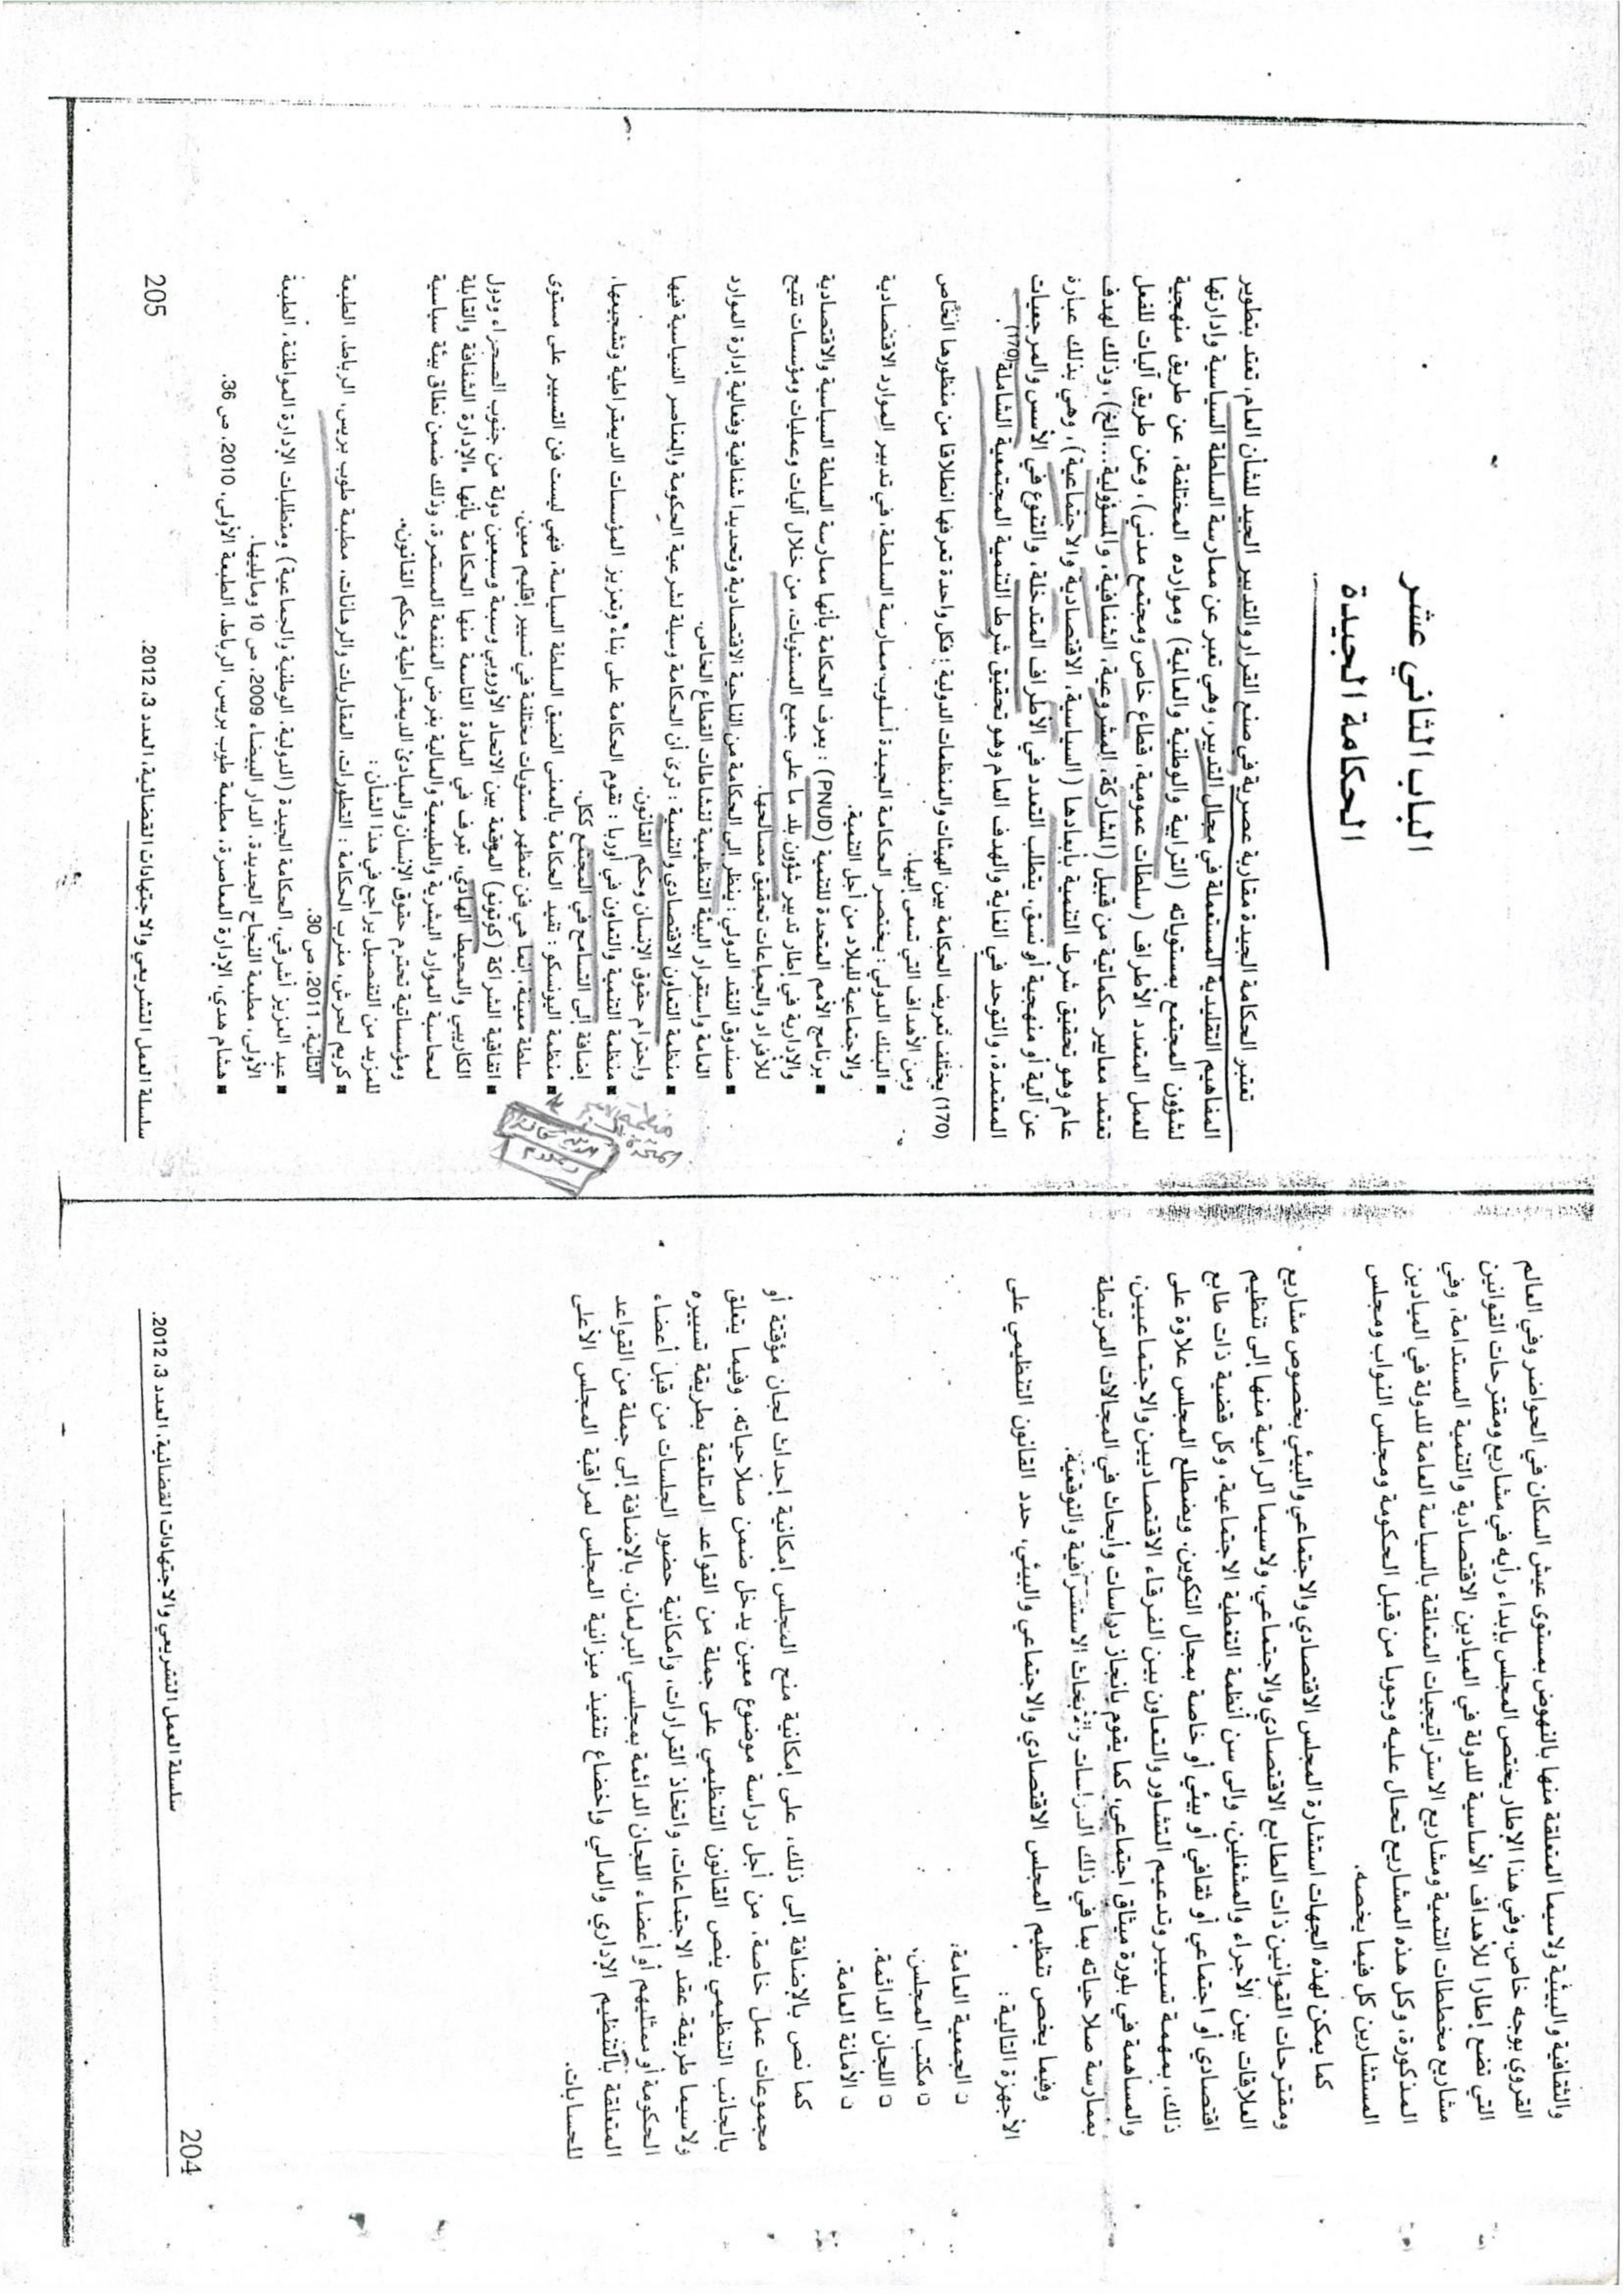 والثقافية والبيئية ولاسيما المتعلقة منها بالنهوض بمستوى عيش السكان في الحواضر وفي العالم
القروي بوجه خاص. وفي هذا الإطار يختص المجلس بإبداء رأيه في مشاريع ومقترحات القوانين
التي تضع إطارا للأهداف الأساسية للدولة في الميادين الاقتصادية والتنمية المستدامة، وفي
مشاريع مخططات التنمية ومشاريع الاستراتيجيات المتعلقة بالسياسة العامة للدولة في الميادين
المذكورة، وكل هذه المشاريع تحال عليه وجوبا من قبل الحكومة ومجلس النواب ومجلس
المستشارين كل فيما يخصه.
كما يمكن لهذه الجهات استشارة المجلس الاقتصادي والاجتماعي والبيئي بخصوص مشاريع
ومقترحات القوانين ذات الطابع الاقتصادي والاجتماعي، ولاسيما الرامية منها إلى تنظيم
العلاقات بين الأجراء والمشغلين، وإلى سن أنظمة التغطية الاجتماعية، وكل قضية ذات طابع
اقتصادي أو اجتماعي أو ثقافي أو بيئي أو خاصة بمجال التكوين، ويضطلع المجلس علاوة على
ذلك، بمهمة تسيير وتدعيم التشاور والتعاون بين الفرقاء الاقتصاديين والاجتماعيين،
والمساهمة في بلورة ميثاق اجتماعي، كما يقوم بانجاز دراسات وأبحاث في المجالات المرتبطة
بممارسة صلاحياته بما في ذلك الدراسات والأبحاث الاستشرافية والتوقعية.
وفيما يخص تنظيم المجلس الاقتصادي والاجتماعي والبيئي، حدد القانون التنظيمي على
الأجهزة التالية :
□ الجمعية العامة.
□ مكتب المجلس.
□ اللجان الدائمة.
□ الأمانة العامة.
كما نص بالإضافة إلى ذلك، على إمكانية منح المجلس إمكانية إحداث لجان مؤقتة أو
مجموعات عمل خاصة، من أجل دراسة موضوع معين يدخل ضمن صلاحياته. وفيما يتعلق
بالجانب التنظيمي ينص القانون التنظيمي على جملة من القواعد المتعلقة بطريقة تسييره
ولاسيما طريقة عقد الاجتماعات، واتخاذ القرارات، وإمكانية حضور الجلسات من قبل أعضاء
الحكومة أو ممثليهم أو أعضاء اللجان الدائمة بمجلسي البرلمان. بالإضافة إلى جملة من القواعد
المتعلقة بالتنظيم الإداري والمالي وإخضاع تنفيذ ميزانية المجلس لمراقبة المجلس الأعلى
للحسابات.
204
سلسلة العمل التشريعي والاجتهادات القضائية، العدد 3، 2012.
الباب الثاني عشر
الحكامة الجيدة
تعتبر الحكامة الجيدة مقاربة عصرية في صنع القرار والتدبير الجيد للشأن العام، تعتد بتطوير
المفاهيم التقليدية المستعملة في مجال التدبير، وهي تعبر عن ممارسة السلطة السياسية وإدارتها
لشؤون المجتمع بمستوياته (الترابية والوطنية والعالمية) وموارده المختلفة، عن طريق منهجية
للعمل المتعدد الأطراف (سلطات عمومية، قطاع خاص ومجتمع مدني)، وعن طريق آليات للفعل
تعتمد معايير حكماتية من قبيل (المشاركة، المشروعية، الشفافية، والمسؤولية...الخ)، وذلك لهدف
عام وهو تحقيق شرط التنمية بأبعادها (السياسية، الاقتصادية والاجتماعية)، وهي بذلك عبارة
عن آلية أو منهجية أو نسق، يتطلب التعدد في الأطراف المتدخلة، والتنوع في الأسس والمرجعيات
المعتمدة، والتوحد في الغاية والهدف العام وهو تحقيق شرط التنمية المجتمعية الشاملة(170).
(170) يختلف تعريف الحكامة بين الهيئات والمنظمات الدولية ؛ فكل واحدة تعرفها انطلاقا من منظورها الخاص
ومن الأهداف التي تسعى إليها.
■ البنك الدولي : يختصر الحكامة الجيدة أسلوب ممارسة السلطة، في تدبير الموارد الاقتصادية
والاجتماعية للبلاد من أجل التنمية.
■ برنامج الأمم المتحدة للتنمية (PNUD) : يعرف الحكامة بأنها ممارسة السلطة السياسية والاقتصادية
والإدارية في إطار تدبير شؤون بلد ما على جميع المستويات، من خلال آليات وعمليات ومؤسسات تتيح
للأفراد والجماعات تحقيق مصالحها.
■ صندوق النقد الدولي : ينظر إلى الحكامة من الناحية الاقتصادية وتحديدا شفافية وفعالية إدارة الموارد
العامة واستقرار البيئة التنظيمية لنشاطات القطاع الخاص.
■ منظمة التعاون الاقتصادي والتنمية : ترى أن الحكامة وسيلة لشرعية الحكومة والعناصر السياسية فيها
واحترام حقوق الإنسان وحكم القانون.
■ منظمة التنمية والتعاون في أوربا : تقوم الحكامة على بناء وتعزيز المؤسسات الديمقراطية وتشجيعها،
إضافة إلى التسامح في المجتمع ككل.
■ منظمة اليونسكو : تفيد الحكامة بالمعنى الضيق السلطة السياسة، فهي ليست فن التسيير على مستوى
سلطة معينة، إنما هي فن تمظهر مستويات مختلفة في تسيير إقليم معين.
■ اتفاقية الشراكة (كوتونو) الموقعة بين الاتحاد الأوروبي وسبعة وسبعين دولة من جنوب الصحراء ودول
الكاريبي والمحيط الهادي، تعرف في المادة التاسعة منها الحكامة بأنها «الإدارة الشفافة والقابلة
لمحاسبة الموارد البشرية والطبيعية والمالية بغرض المنفعة المستمرة، وذلك ضمن نطاق بيئة سياسية
ومؤسساتية تحترم حقوق الإنسان والمبادئ الديمقراطية وحكم القانون».
للمزيد من التفصيل يراجع في هذا الشأن :
■ كريم لحرش، مغرب الحكامة : التطورات، المقاربات والرهانات، مطبعة طوب بريس، الرباط، الطبعة
الثانية، 2011، ص 30.
■ عبد العزيز أشرقي، الحكامة الجيدة (الدولية، الوطنية والجماعية) ومتطلبات الإدارة المواطنة، الطبعة
الأولى، مطبعة النجاح الجديدة، الدار البيضاء 2009، ص 10 ومايليها.
■ هشام هدي، الإدارة المعاصرة، مطبعة طوب بريس، الرباط، الطبعة الأولى، 2010، ص 36.
سلسلة العمل التشريعي والاجتهادات القضائية، العدد 3، 2012.
205